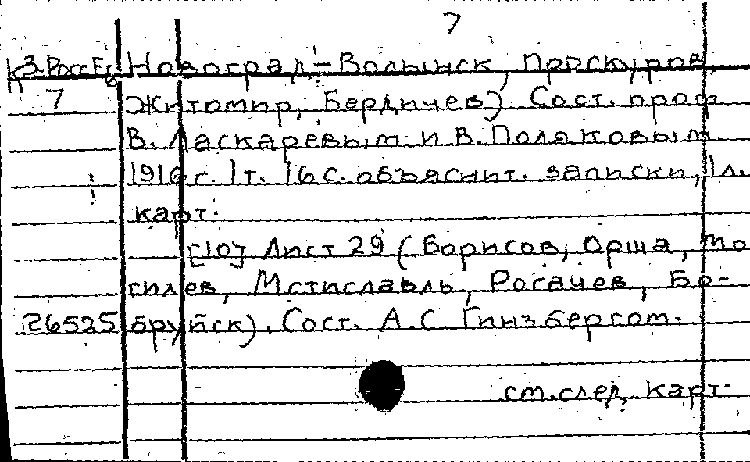 7
К3-РоссЕв Новоград-Волынск, Проскуров,
7 Житомир, Бердичев). Сост. проф.
В. Ласкаревым и В. Поляковым.
1916 г. 1 т. 16 с. объяснит. записки, 1 л.
карт.
[10] Лист 29 (Борисов, Орша, Мо
гилев, Мстиславль, Рогачев, Бо-
26525 бруйск). Сост. А.С Гинзбергом.
см. след. карт.